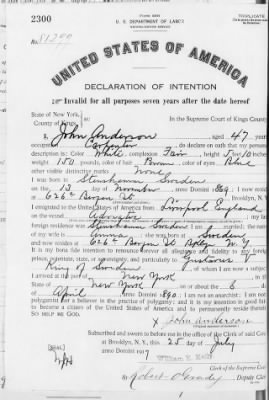 2300
Form 2203
TRIPLICATE
U. S. DEPARTMENT OF LABOR
NATURALIZATION SERVICE
No. 81290
UNITED STATES OF AMERICA
DECLARATION OF INTENTION
Invalid for all purposes seven years after the date hereof
State of New York,
In the Supreme Court of Kings County
County of Kings,
I, John Anderson, aged 47 years,
occupation Carpenter, do declare on oath that my personal
description is: Color White, complexion Fair, height 5 feet 10 inches,
weight 150 pounds, color of hair Brown, color of eyes Blue
other visible distinctive marks None
I was born in Sweden
on the 13 day of November, anno Domini 1869; I now reside
at 626 Bergen St
I emigrated to the United States of America from Liverpool England
on the vessel
foreign residence was Sweden
wife is Emma; she was born in Sweden
and now resides at 626 Bergen St Bklyn N. Y.
It is my bona fide intention to renounce forever all allegiance and fidelity to any foreign
prince, potentate, state, or sovereignty, and particularly to Gustavus
King of Sweden, of whom I am now a subject;
I arrived at the port of New York, in the
State of New York on or about the 6 day
of April, anno Domini 1890; I am not an anarchist; I am not a
polygamist nor a believer in the practice of polygamy; and it is my intention in good faith
to become a citizen of the United States of America and to permanently reside therein:
So help me God.
x John Anderson
Subscribed and sworn to before me in the office of the Clerk of said Court
at Brooklyn, N. Y., this 25 day of July
[SEAL.]
anno Domini 1917
William E. Kelly
Clerk of the
By Robert O'Grady Deputy Clerk